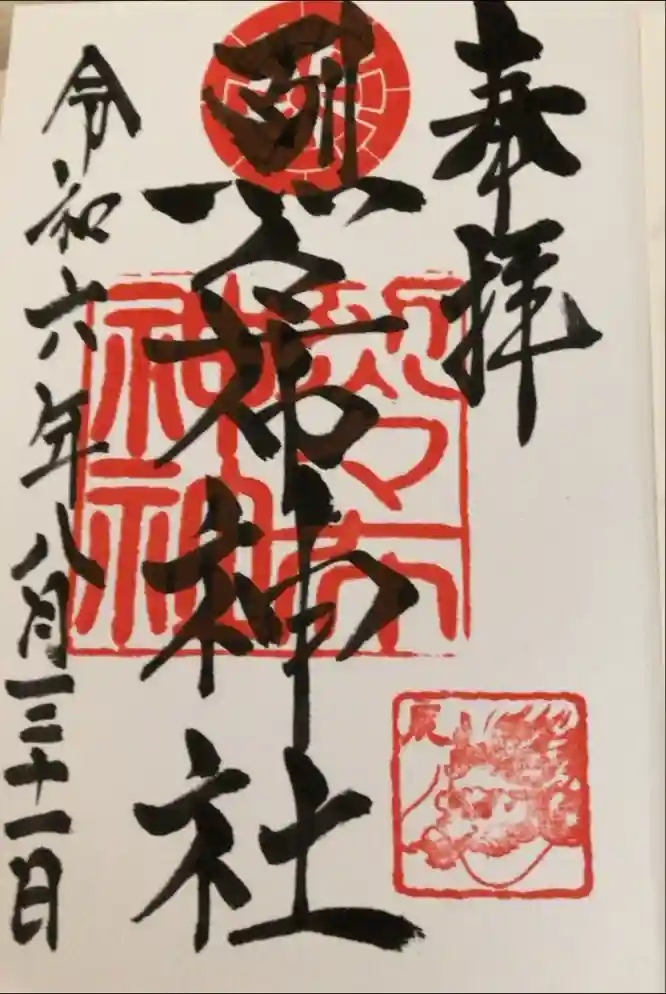 奉拝
烈々布神社
令和六年八月三十一日
烈々布
神社
辰